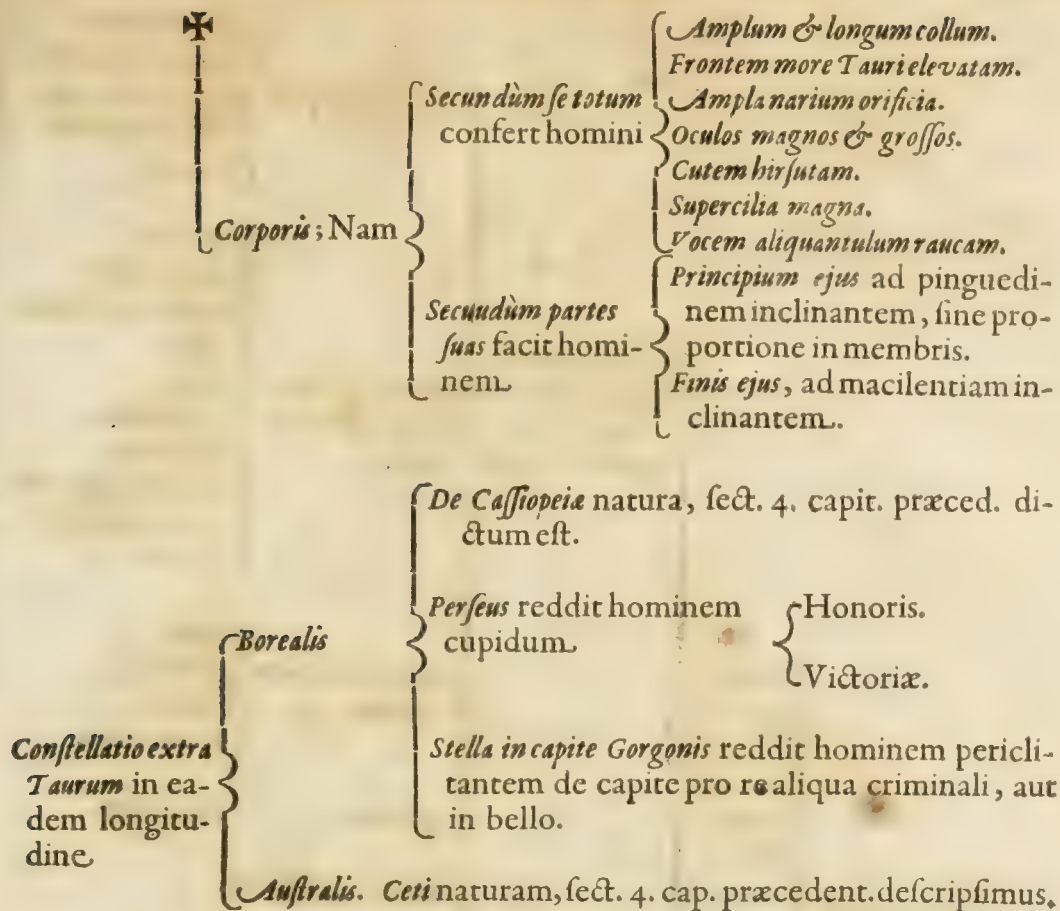 ✠
I
Corporis; Nam
Secundùm ſe totum
confert homini
Amplum & longum collum.
Frontem more Tauri elevatam.
Ampla narium orificia.
Oculos magnos & groſſos.
Cutem hirſutam.
Supercilia magna.
Vocem aliquantulum raucam.
Secuudùm partes
ſuas facit homi-
nem
Principium ejus ad pinguedi-
nem inclinantem, ſine pro-
portione in membris.
Finis ejus, ad macilentiam in-
clinantem.
Conſtellatio extra
Taurum in ea-
dem longitu-
dine
Borealis
De Caſſiopeiæ natura, ſect. 4. capit. præced. di-
ctum eſt.
Perſeus reddit hominem
cupidum
Honoris.
Victoriæ.
Stella in capite Gorgonis reddit hominem pericli-
tantem de capite pro re aliqua criminali, aut
in bello.
Auſtralis. Ceti naturam, ſect. 4. cap. præcedent. deſcripſimus.